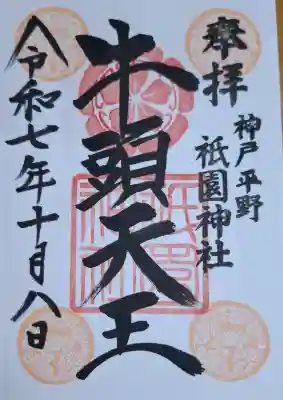 奉拝
神戸平野
祇園神社
牛頭天王
令和七年十月八日